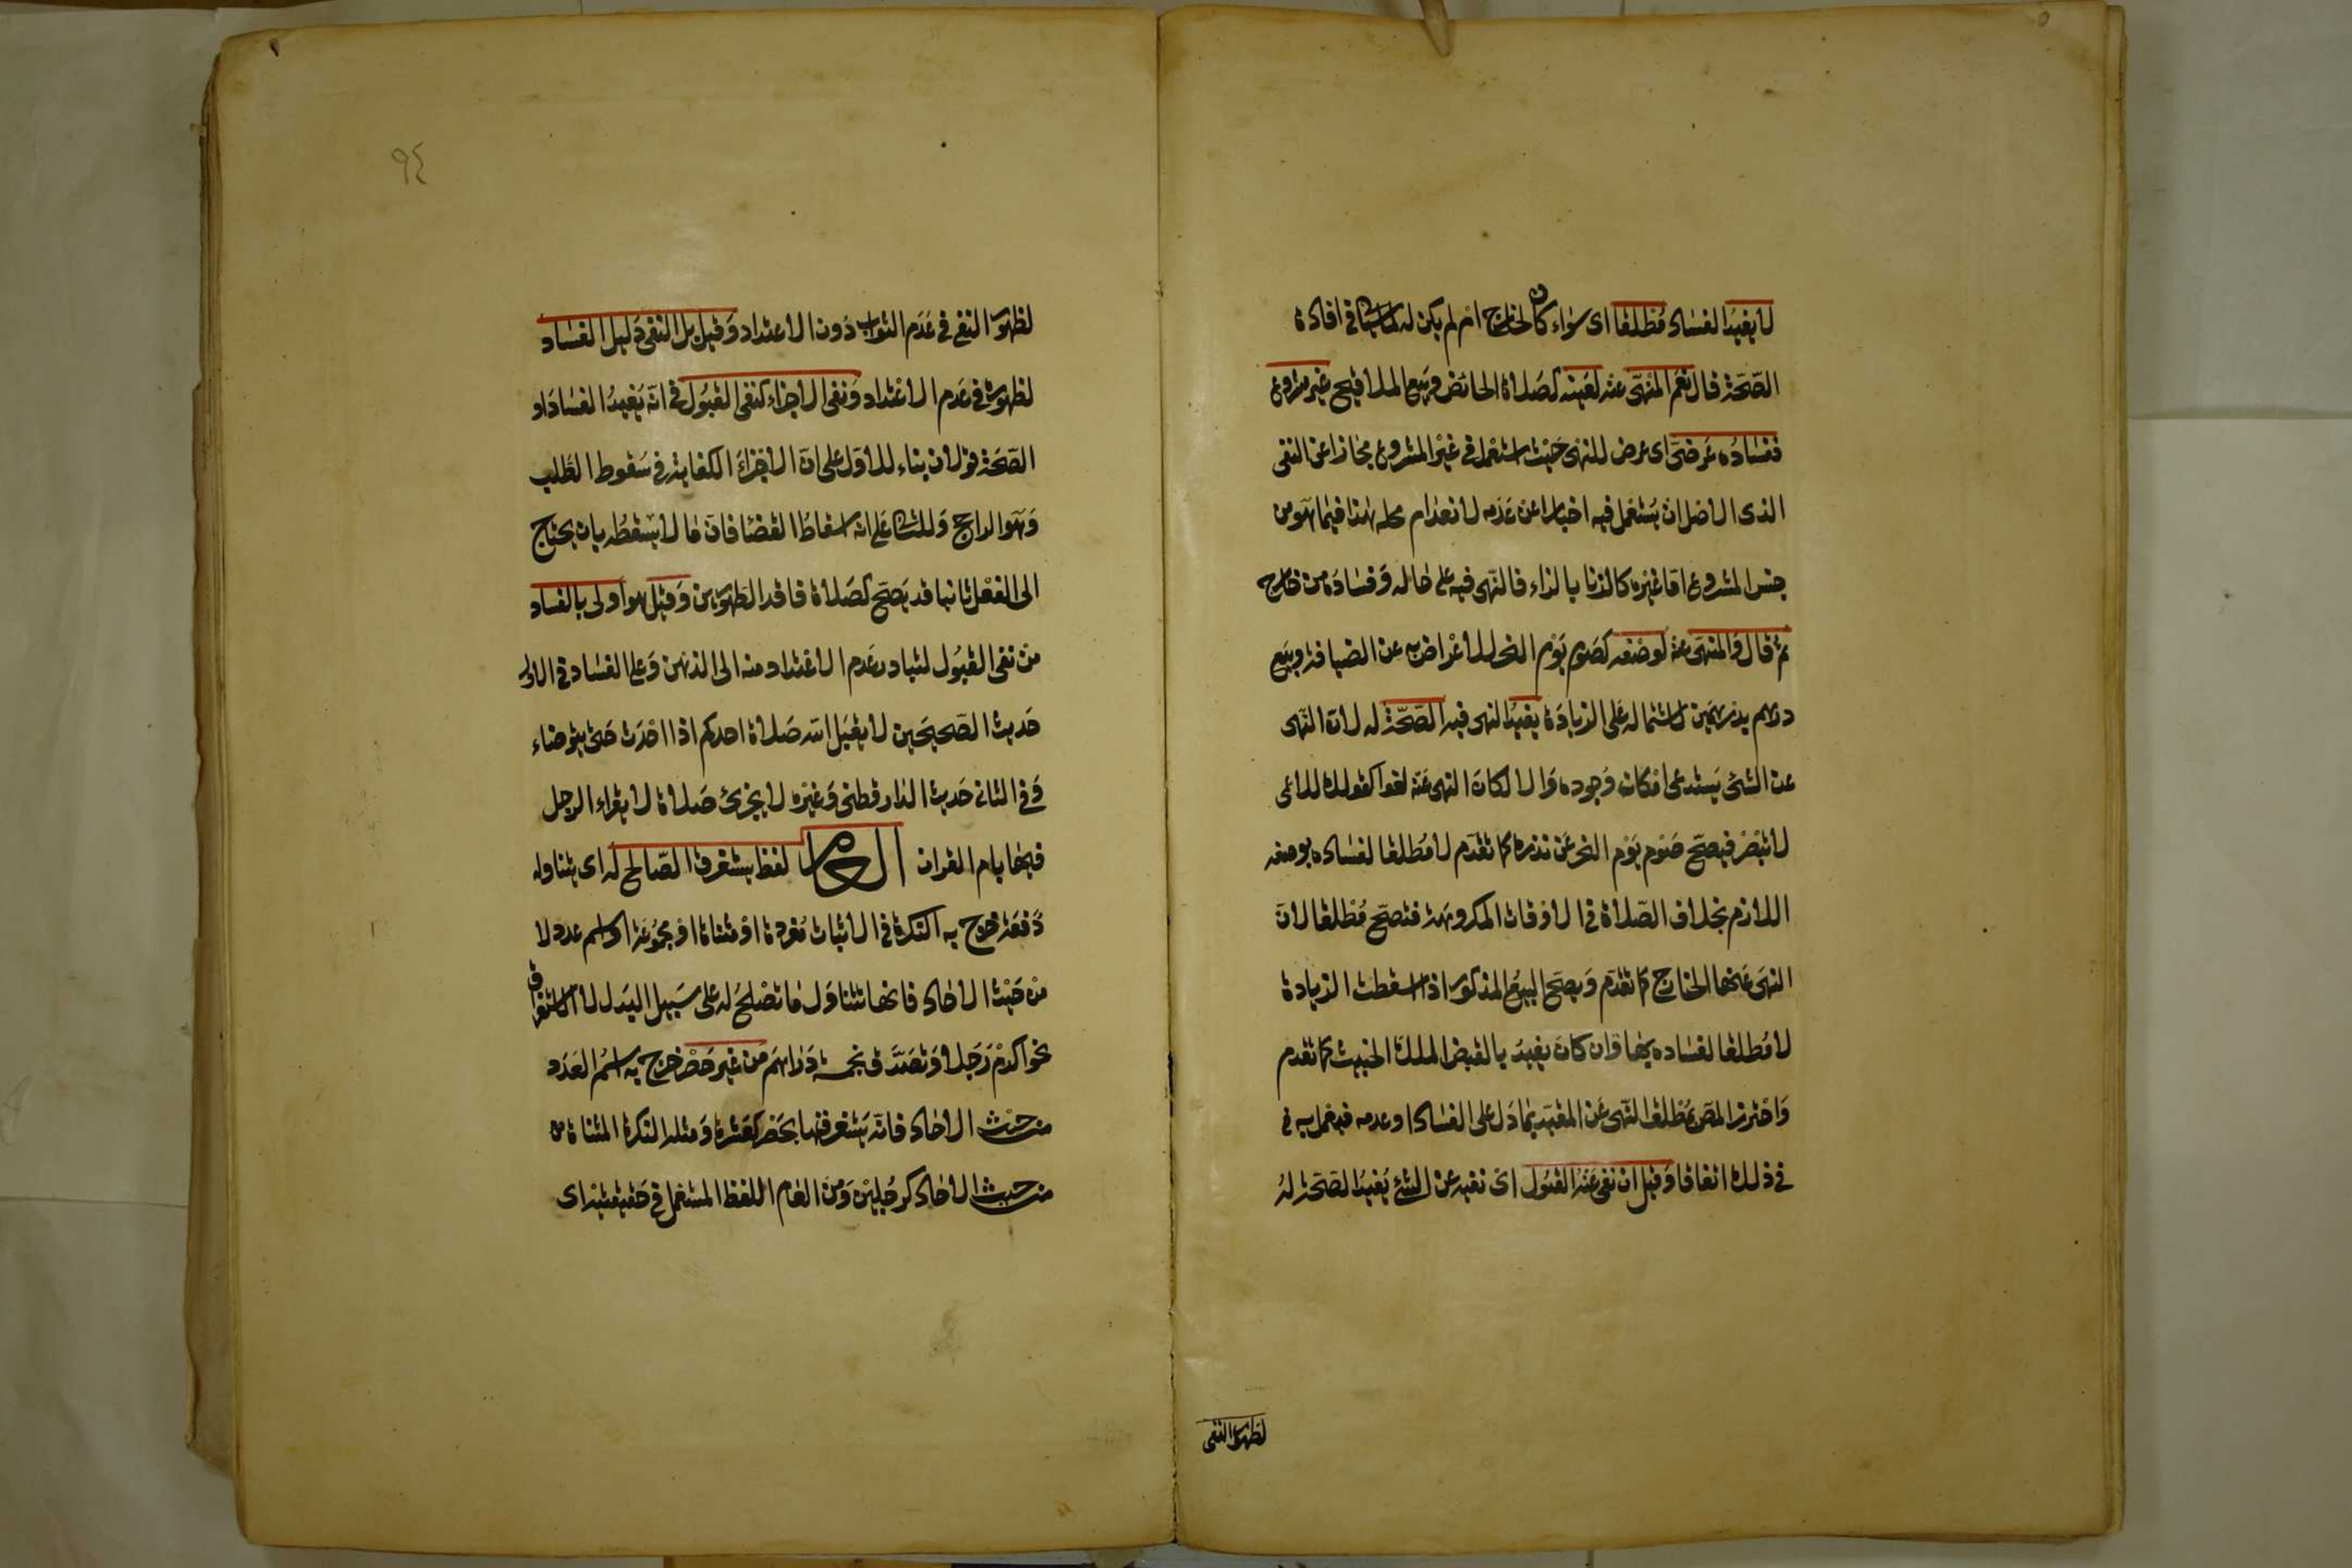 لا يفيد الفساد مطلقا اى سواء كان لخارج ام لم يكن له لما سياتى فى افادة
الصحة قال نعم المنهى عنه لعينه كصلاة الحائض وبيع الملاقيح غير مشروع
ففساده عرضى اى عرض للنهى حيث استعمل فى غير المشروع مجازا عن النفى
الذى الاصل ان يستعمل فيه اخبارا عن عدمه لانعدام محله هذا فيما هو من
جنس المشروع اما غيره كالزنا بالزاء فالنهى فيه على حاله وفساده من خارج
ثم قال والمنهى عنه لوصفه كصوم يوم النحر للاعراض به عن الضيافة وبيع
درهم بدرهمين لاشتماله على الزيادة يفيد النهى فيه الصحة له لان النهى
عن الشئ يستدعى امكان وجوده والا لكان النهى عنه لغوا كقولك للاعمى
لا تبصر فيصح صوم يوم النحر عن نذره كما تقدم لا مطلقا لفساده بوصفه
اللازم بخلاف الصلاة فى الاوقات المكروهة فتصح مطلقا لان
النهى عنها لخارج كما تقدم ويصح البيع المذكور اذا اسقطت الزيادة
لا مطلقا لفساده بها وان كان يفيد بالقبض الملك الخبيث كما تقدم
واحترز المص بمطلق النهى عن المقيد بما دل على الفساد او عدمه فيعمل به فى
فى ذلك اتفاقا وقيل ان نفى عنه القبول اى نفيه عن الشئ يفيد الصحة له
لظهور النفى
٩٤
لظهور النفى فى عدم الثواب دون الاعتداد وقيل بل النفى دليل الفساد
لظهوره فى عدم الاعتداد ونفى الاجزاء كنفى القبول فى انه يفيد الفساد او
الصحة قولان بناء للاول على ان الاجزاء الكفاية فى سقوط الطلب
وهو الراجح وللثانى على انه اسقاط القضا فان ما لا يسقطه بان يحتاج
الى الفعل ثانيا قد يصح كصلاة فاقد الطهورين وقيل هو اولى بالفساد
من نفى القبول لتبادر عدم الاعتداد منه الى الذهن وعلى الفساد فى الاول
حديث الصحيحين لا يقبل الله صلاة احدكم اذا احدث حتى يتوضاء
وفى الثانى حديث الدارقطنى وغيره لا يجزئ صلاة لا يقراء الرجل
فيها بام القران العام لفظ يستغرق الصالح له اى يتناوله
دفعة خرج به النكرة فى الاثبات مفردة او مثناة او مجموعة او اسم عدد لا
من حيث الاحاد فانها تتناول ما تصلح له على سبيل البدل لا الاستغراق
نحو اكرم رجلا وتصدق بخمسة دراهم من غير حصر خرج به اسم العدد
من حيث الاحاد فانه يستغرقها بحصر كعشرة ومثله النكرة المثناة من
من حيث الاحاد كرجلين ومن العام اللفظ المستعمل فى حقيقتيه اى